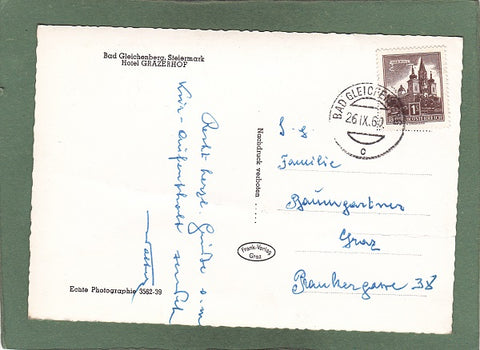 Bad Gleichenberg, Steiermark
Hotel GRAZERHOF
Recht herzl. Grüße v. m.
Kur-Aufenthalt sendet
Walter
Echte Photographie 3562-39
Nachdruck verboten
Frank-Verlag
Graz
BAD GLEICHENBERG
26.IX.60
c
1
S
ÖSTERREICH
Familie
Baumgartner
Graz
Prankergasse 38